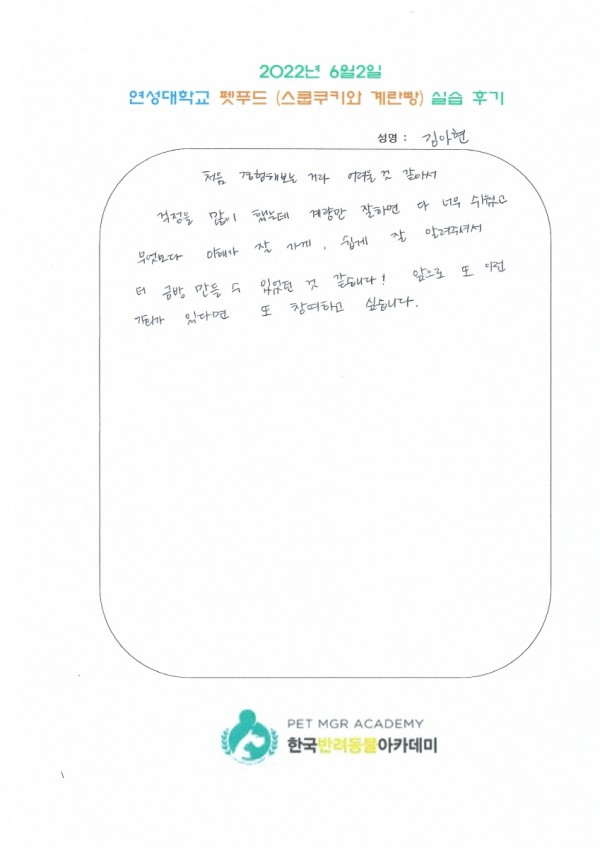 2022년 6월2일
연성대학교 펫푸드 (스쿱쿠키와 계란빵) 실습 후기
성명 : 김아현
처음 경험해보는 거라 어려울 것 같아서
걱정을 많이 했는데 계량만 잘하면 다 너무 쉬웠고
무엇보다 이해가 잘 가게, 쉽게 잘 알려주셔서
더 금방 만들 수 있었던 것 같습니다! 앞으로 또 이런
기회가 있다면 또 참여하고 싶습니다.
PET MGR ACADEMY
한국반려동물아카데미